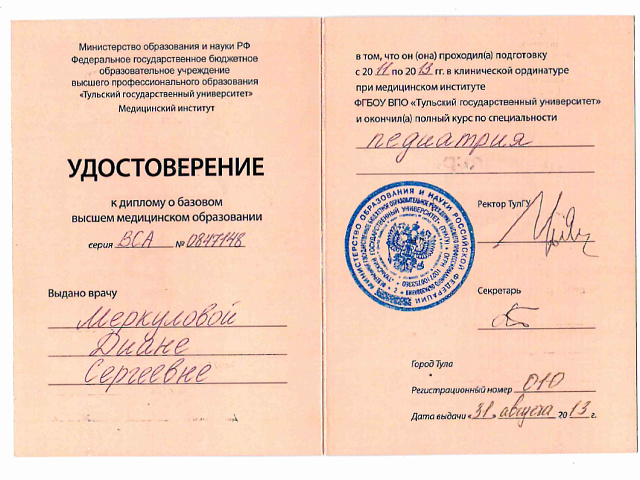 Министерство образования и науки РФ
Федеральное государственное бюджетное
образовательное учреждение
высшего профессионального образования
«Тульский государственный университет»
Медицинский институт
УДОСТОВЕРЕНИЕ
к диплому о базовом
высшем медицинском образовании
серия ВСА № 0847148
Выдано врачу
Меркуловой
Диане
Сергеевне
в том, что он (она) проходил(а) подготовку
с 2011 по 2013 гг. в клинической ординатуре
при медицинском институте
ФГБОУ ВПО «Тульский государственный университет»
и окончил(а) полный курс по специальности
педиатрия
МИНИСТЕРСТВО ОБРАЗОВАНИЯ И НАУКИ РОССИЙСКОЙ ФЕДЕРАЦИИ
Ректор ТулГУ
Секретарь
Город Тула
Регистрационный номер 010
Дата выдачи «31» августа 2013 г.